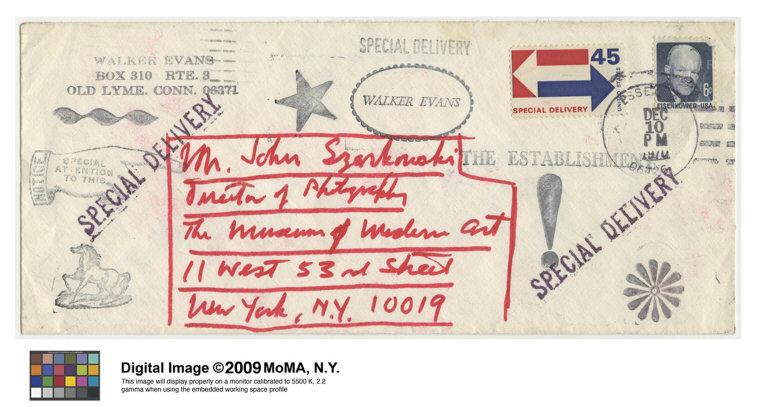 WALKER EVANS
BOX 310 RTE. 3
OLD LYME. CONN. 06371
SPECIAL DELIVERY
WALKER EVANS
45
SPECIAL DELIVERY
6c
EISENHOWER·USA
ESSEX
DEC
10
PM
1970
06426
NOTICE
SPECIAL
ATTENTION
TO THIS
SPECIAL DELIVERY
THE ESTABLISHMENT
SPECIAL DELIVERY
Mr. John Szarkowski
Director of Photgraphy
The Museum of Modern Art
11 West 53rd Street
New York, N.Y. 10019
Digital Image ©2009 MoMA, N.Y.
This image will display properly on a monitor calibrated to 5500 K, 2.2
gamma when using the embedded working space profile